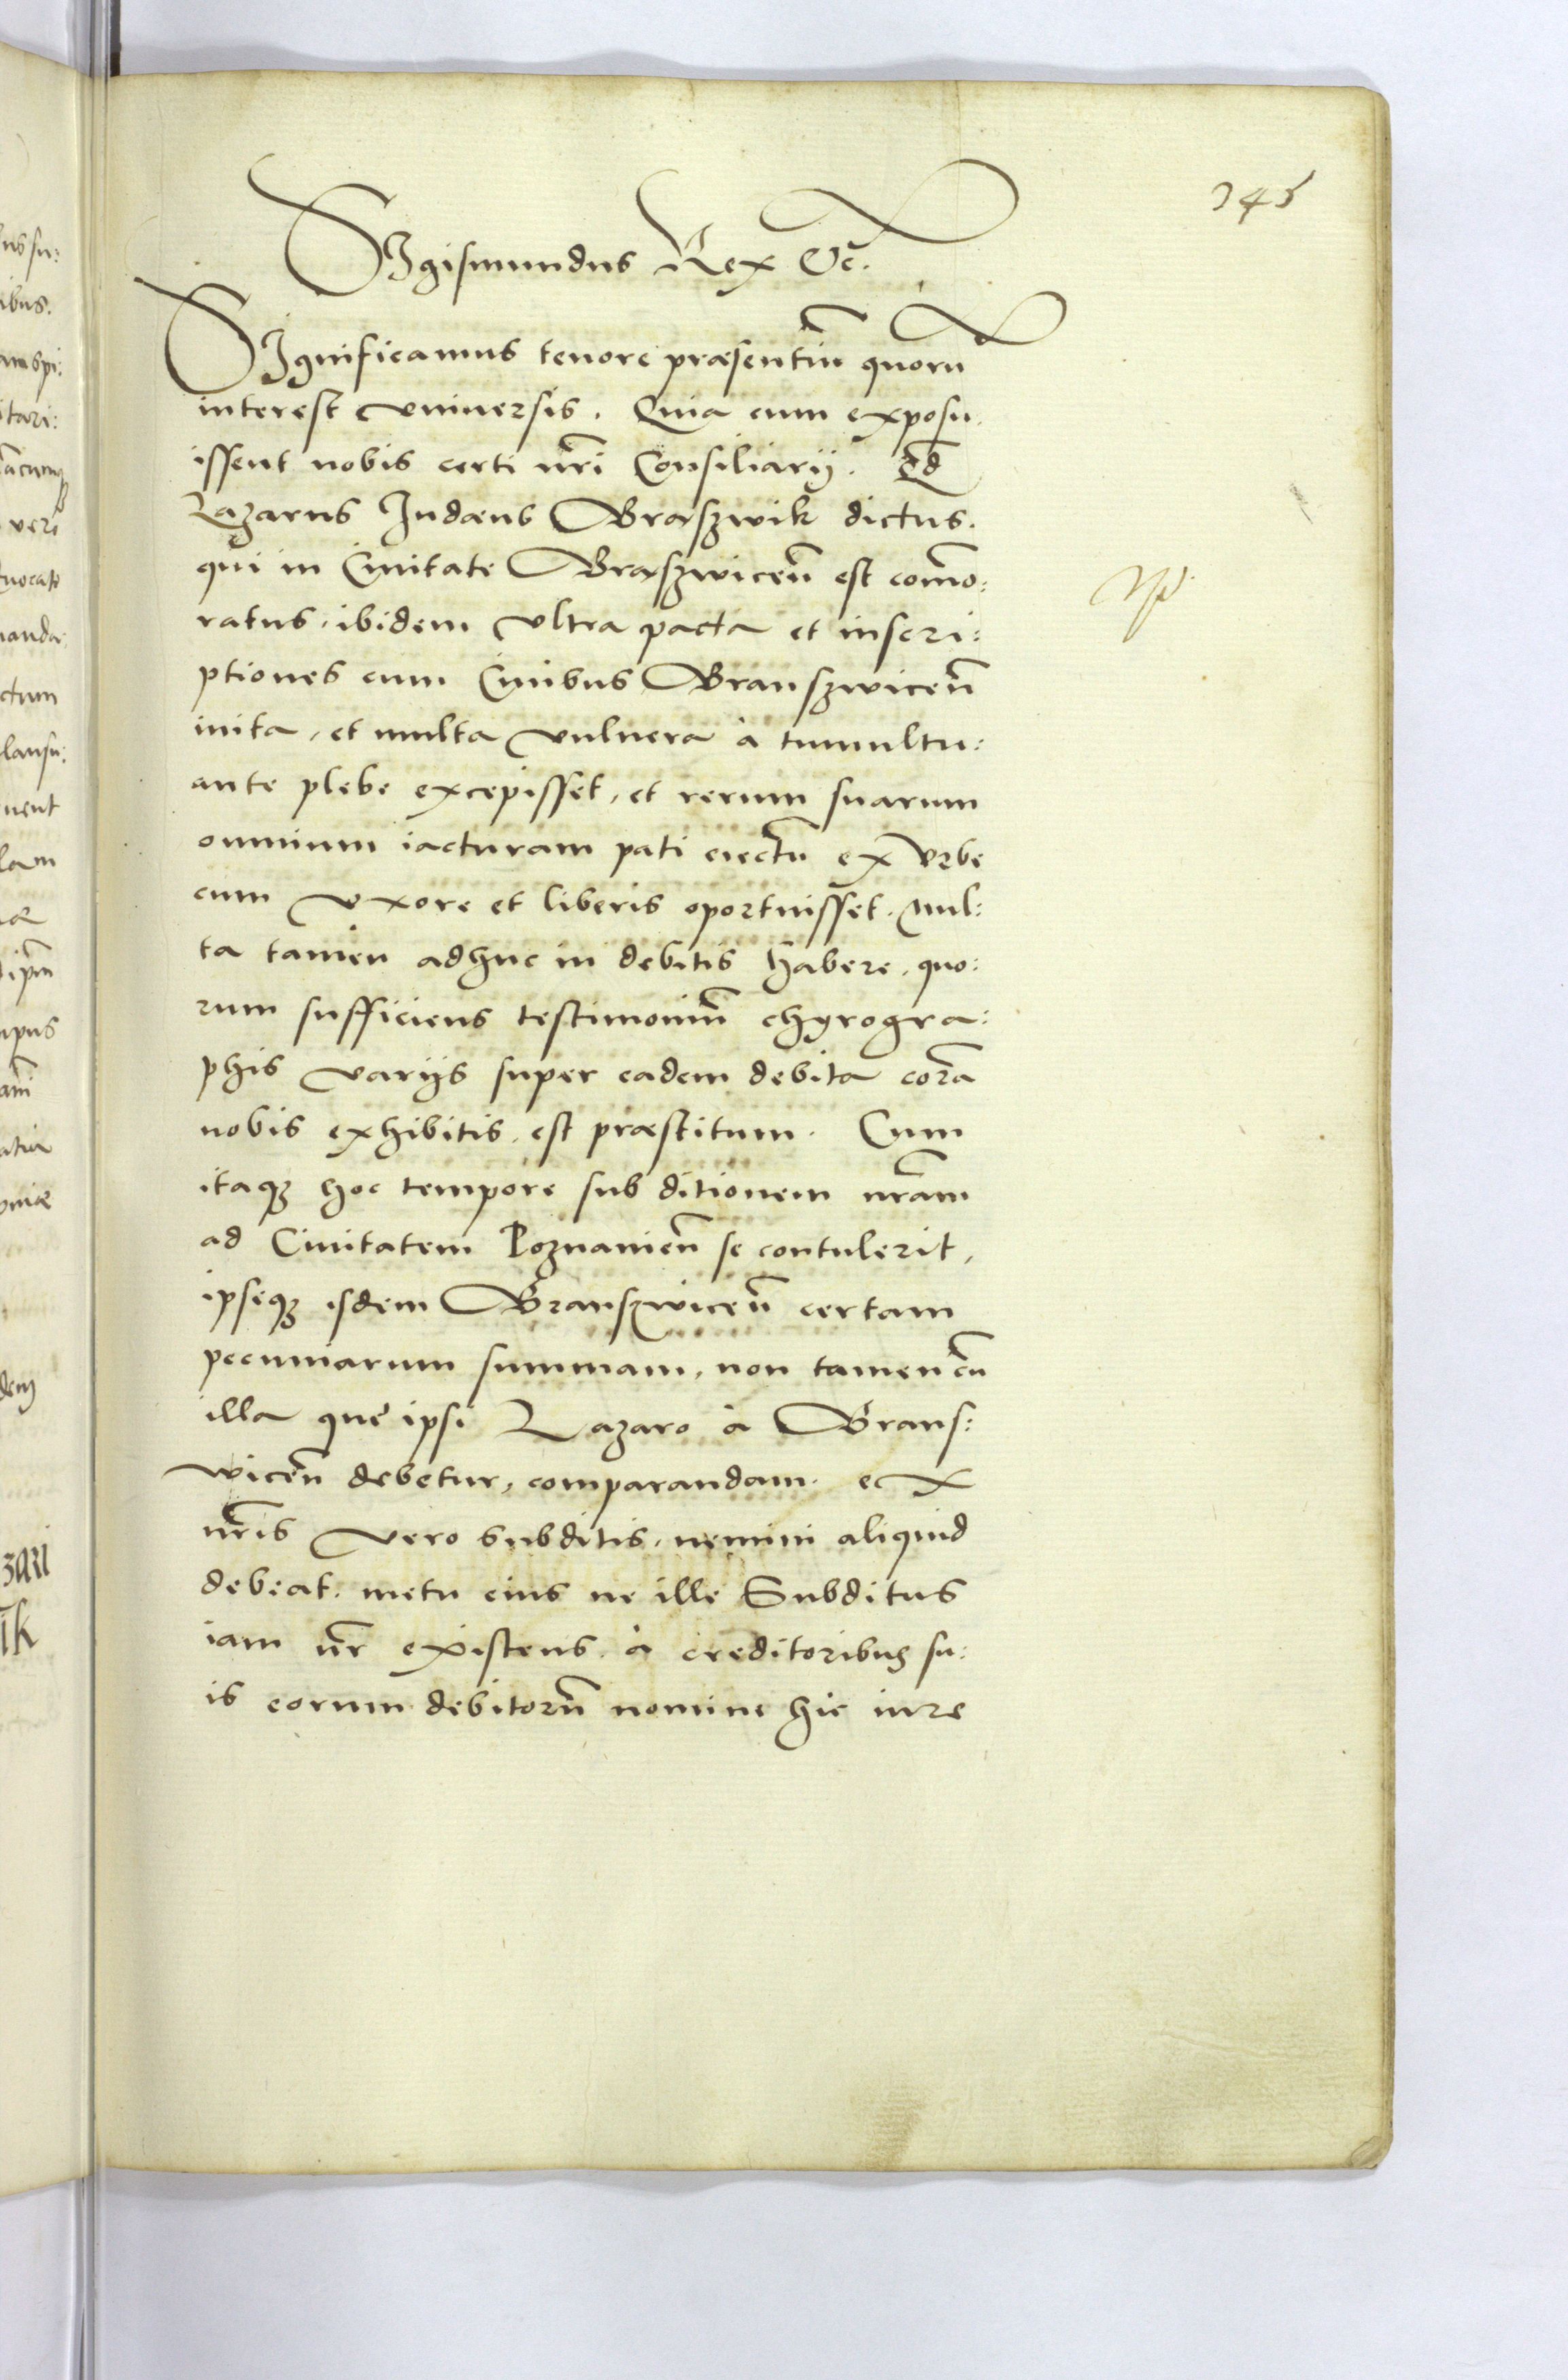 345
SIgismundus Rex &c̄.
SIgnificamus tenore præsentiū quorū
interest vniuersis. Quia cum exposu
issent nobis certi nr̄i Consiliarij. Qd̄
Lazarus Iudæus Braszwik dictus.
qui in Ciuitate Braszwiceñ est com̄o:
ratus, ibidem vltra pacta et inscri:
ptiones cum Ciuibus Branszwiceñ
inita, et multa vulnera à tumultu:
ante plebe excepisset, et rerum suarum
omnium iacturam pati eiectū ex vrbe
cum vxore et liberis oportuisset. Mul:
ta tamen adhuc in debitis habere, quo:
rum sufficiens testimoniū chyrogra:
phis varijs super eadem debita corā
nobis exhibitis, est præstitum. Cum
itaqȝ hoc tempore sub ditionem nr̄am
ad Ciuitatem Poznanieñ se contulerit,
ipseqȝ isdem Branszwiceñ certam
pecuniarum summam, non tamen cū
illa quę ipsi Lazaro à Brans:
wiceñ debetur, comparandam. ex
nr̄is vero subditis, nemini aliquid
debeat. metu eius ne ille Subditus
iam nr̄ existens à creditoribus su:
is eorum debitorū nomine hic iure